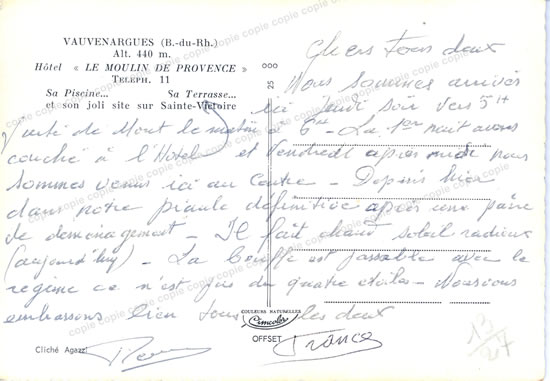 VAUVENARGUES (B.-du-Rh.)
Alt. 440 m.
Hôtel « LE MOULIN DE PROVENCE »
TELEPH. 11
Sa Piscine... Sa Terrasse...
et son joli site sur Sainte-Victoire
25
Chers tous deux
Nous sommes arrivés
ici jeudi soir vers 5H
Parti de Mont le matin à 6H - La 1ère nuit avons
couché à l'Hôtel et Vendredi après midi nous
sommes venus ici au Centre - Depuis hier
dans notre piaule définitive après une
de demenagement - Il fait chaud soleil radieux
(aujourd'hui) - La bouffe est passable avec le
régime ce n'est pas du quatre étoiles - Nous vous
embrassons bien tous les deux
France
COULEURS NATURELLES
Cimcolor
OFFSET
Cliché Agazzi
13/27
copie copie copie copie